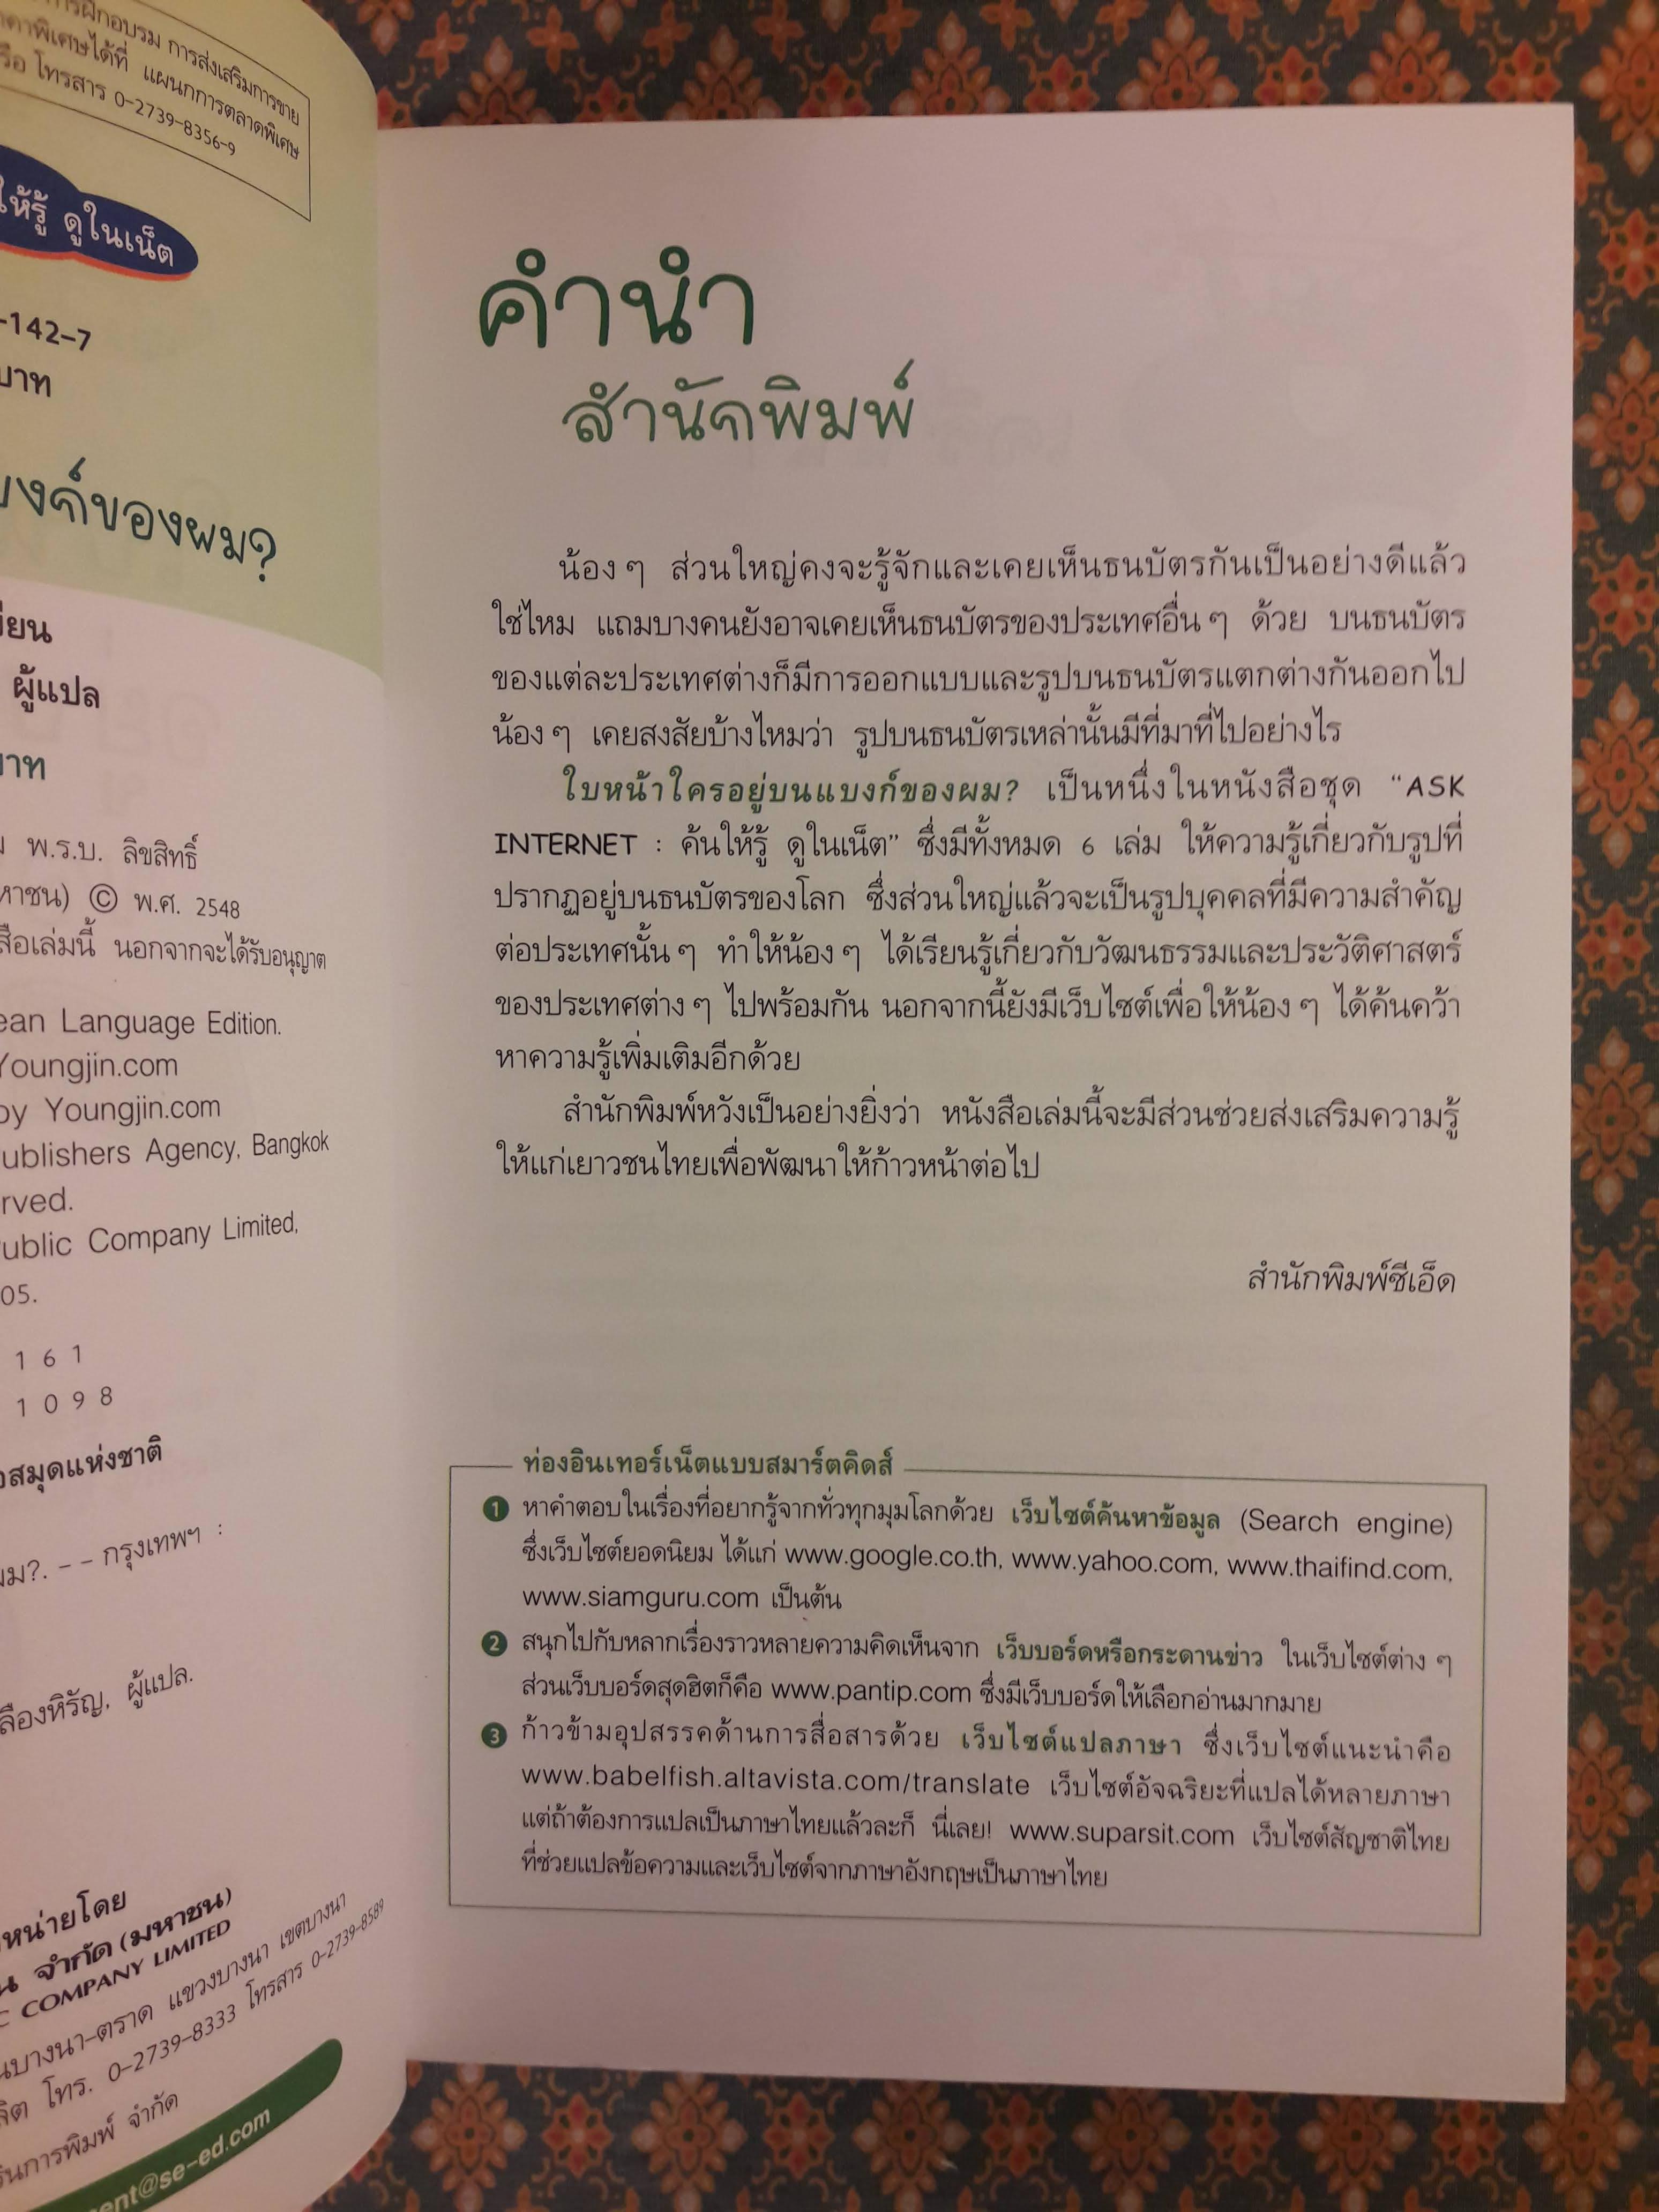 การฝึกอบรม การส่งเสริมการขาย
ราคาพิเศษได้ที่ แผนกการตลาดพิเศษ
หรือ โทรสาร 0-2739-8356-9
ให้รู้ ดูในเน็ต
-142-7
บาท
บงก์ของผม?
เขียน
ผู้แปล
บาท
พ.ร.บ. ลิขสิทธิ์
(มหาชน) © พ.ศ. 2548
สือเล่มนี้ นอกจากจะได้รับอนุญาต
ean Language Edition.
Youngjin.com
by Youngjin.com
ublishers Agency, Bangkok
rved.
ublic Company Limited,
05.
1 6 1
1 0 9 8
อสมุดแห่งชาติ
ผม?. -- กรุงเทพฯ :
ลืองหิรัญ, ผู้แปล.
หน่ายโดย
น จำกัด (มหาชน)
C COMPANY LIMITED
นบางนา-ตราด แขวงบางนา เขตบางนา
โทร. 0-2739-8333 โทรสาร 0-2739-8589
รินการพิมพ์ จำกัด
ent@se-ed.com
คำนำ
สำนักพิมพ์
น้องๆ ส่วนใหญ่คงจะรู้จักและเคยเห็นธนบัตรกันเป็นอย่างดีแล้ว
ใช่ไหม แถมบางคนยังอาจเคยเห็นธนบัตรของประเทศอื่นๆ ด้วย บนธนบัตร
ของแต่ละประเทศต่างก็มีการออกแบบและรูปบนธนบัตรแตกต่างกันออกไป
น้องๆ เคยสงสัยบ้างไหมว่า รูปบนธนบัตรเหล่านั้นมีที่มาที่ไปอย่างไร
ใบหน้าใครอยู่บนแบงก์ของผม? เป็นหนึ่งในหนังสือชุด “ASK
INTERNET : ค้นให้รู้ ดูในเน็ต” ซึ่งมีทั้งหมด 6 เล่ม ให้ความรู้เกี่ยวกับรูปที่
ปรากฏอยู่บนธนบัตรของโลก ซึ่งส่วนใหญ่แล้วจะเป็นรูปบุคคลที่มีความสำคัญ
ต่อประเทศนั้นๆ ทำให้น้องๆ ได้เรียนรู้เกี่ยวกับวัฒนธรรมและประวัติศาสตร์
ของประเทศต่างๆ ไปพร้อมกัน นอกจากนี้ยังมีเว็บไซต์เพื่อให้น้องๆ ได้ค้นคว้า
หาความรู้เพิ่มเติมอีกด้วย
สำนักพิมพ์หวังเป็นอย่างยิ่งว่า หนังสือเล่มนี้จะมีส่วนช่วยส่งเสริมความรู้
ให้แก่เยาวชนไทยเพื่อพัฒนาให้ก้าวหน้าต่อไป
สำนักพิมพ์ซีเอ็ด
ท่องอินเทอร์เน็ตแบบสมาร์ตคิดส์
1 หาคำตอบในเรื่องที่อยากรู้จากทั่วทุกมุมโลกด้วย เว็บไซต์ค้นหาข้อมูล (Search engine)
ซึ่งเว็บไซต์ยอดนิยม ได้แก่ www.google.co.th, www.yahoo.com, www.thaifind.com,
www.siamguru.com เป็นต้น
2 สนุกไปกับหลากเรื่องราวหลายความคิดเห็นจาก เว็บบอร์ดหรือกระดานข่าว ในเว็บไซต์ต่างๆ
ส่วนเว็บบอร์ดสุดฮิตก็คือ www.pantip.com ซึ่งมีเว็บบอร์ดให้เลือกอ่านมากมาย
3 ก้าวข้ามอุปสรรคด้านการสื่อสารด้วย เว็บไซต์แปลภาษา ซึ่งเว็บไซต์แนะนำคือ
www.babelfish.altavista.com/translate เว็บไซต์อัจฉริยะที่แปลได้หลายภาษา
แต่ถ้าต้องการแปลเป็นภาษาไทยแล้วละก็ นี่เลย! www.suparsit.com เว็บไซต์สัญชาติไทย
ที่ช่วยแปลข้อความและเว็บไซต์จากภาษาอังกฤษเป็นภาษาไทย